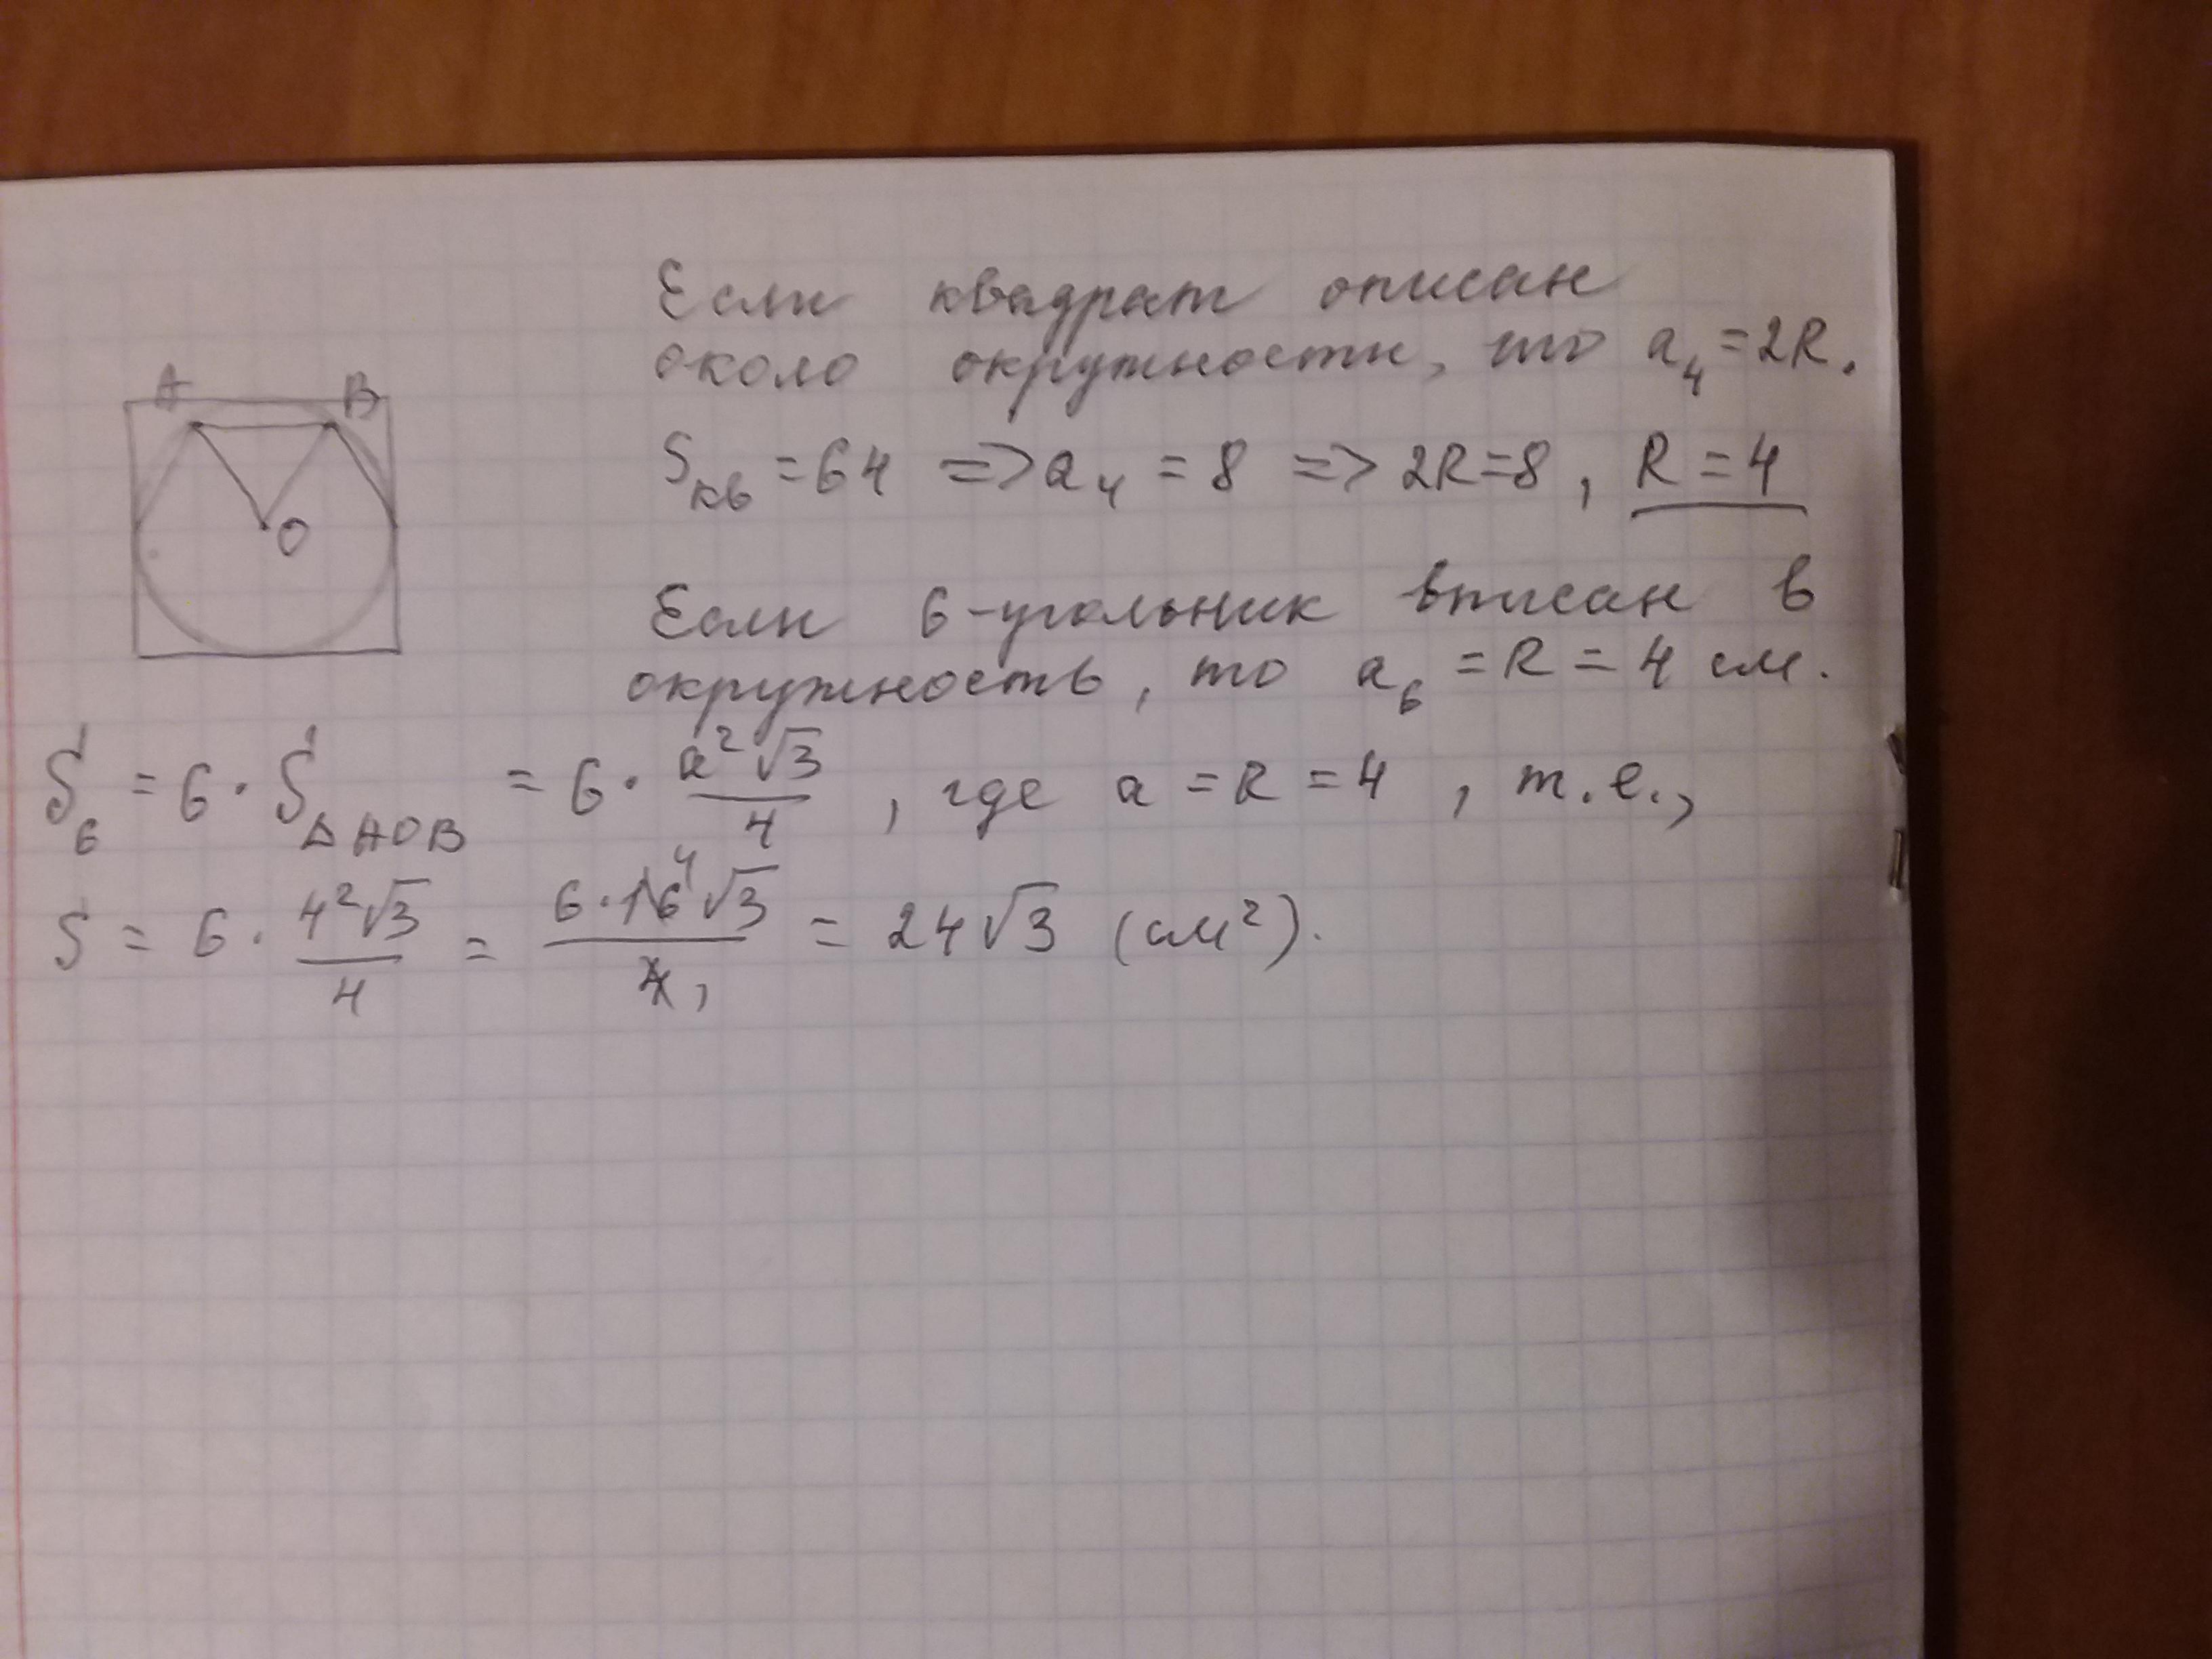 Если квадрат описан
около окружности, то a₄ = 2R.
A B
O
Sкв = 64 => a₄ = 8 => 2R = 8, R = 4
Если 6-угольник вписан в
окружность, то a₆ = R = 4 см.
S₆ = 6 · S△AOB = 6 · a²√3/4, где a = R = 4, т.е.,
S = 6 · 4²√3/4 = 6·16⁴√3/4₁ = 24√3 (см²).